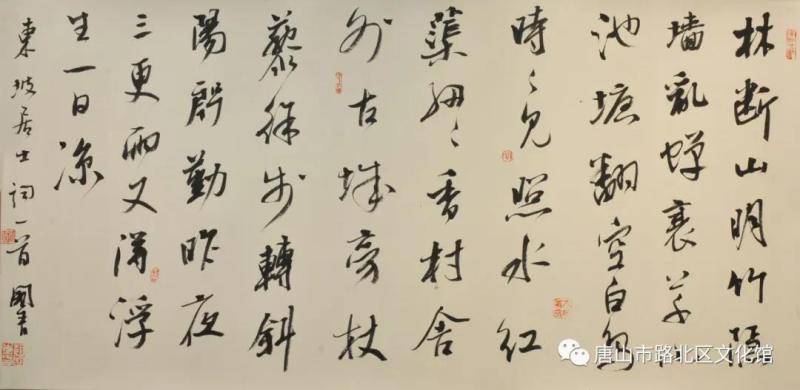 林断山明竹隱
墙亂蟬衰草小
池塘翻空白鳥
時々見照水红
蕖細々香村舍
外古城旁杖
藜徐步轉斜
陽殷勤昨夜
三更雨又得浮
生一日凉
東坡居士詞一首
唐山市路北区文化馆